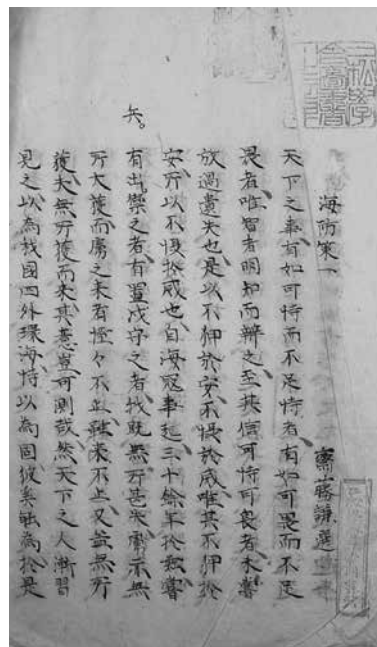 海防策一
齋藤謙選
天下之事有如可恃而不足恃者有如可畏而不足
畏者唯智者明知而辨之至其信可恃可畏者未嘗
放過遺失也是以不狎於安不懼於威唯其不狎於
安所以不懼於威也自海寇事起三十餘年於茲嘗
矣。
有出禦之者有置戍守之者我既無所甚失虜亦無
所大獲而虜之来者恠々不止雖来不止又益無所
獲夫無所獲而来其意豈可測哉然天下之人漸習
見之以為我國四外環海恃以為固彼奚能為於是